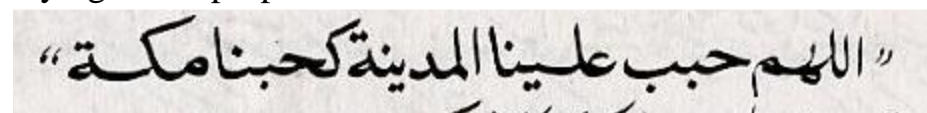 "اللهم حبب علينا المدينة كحبنا مكة"